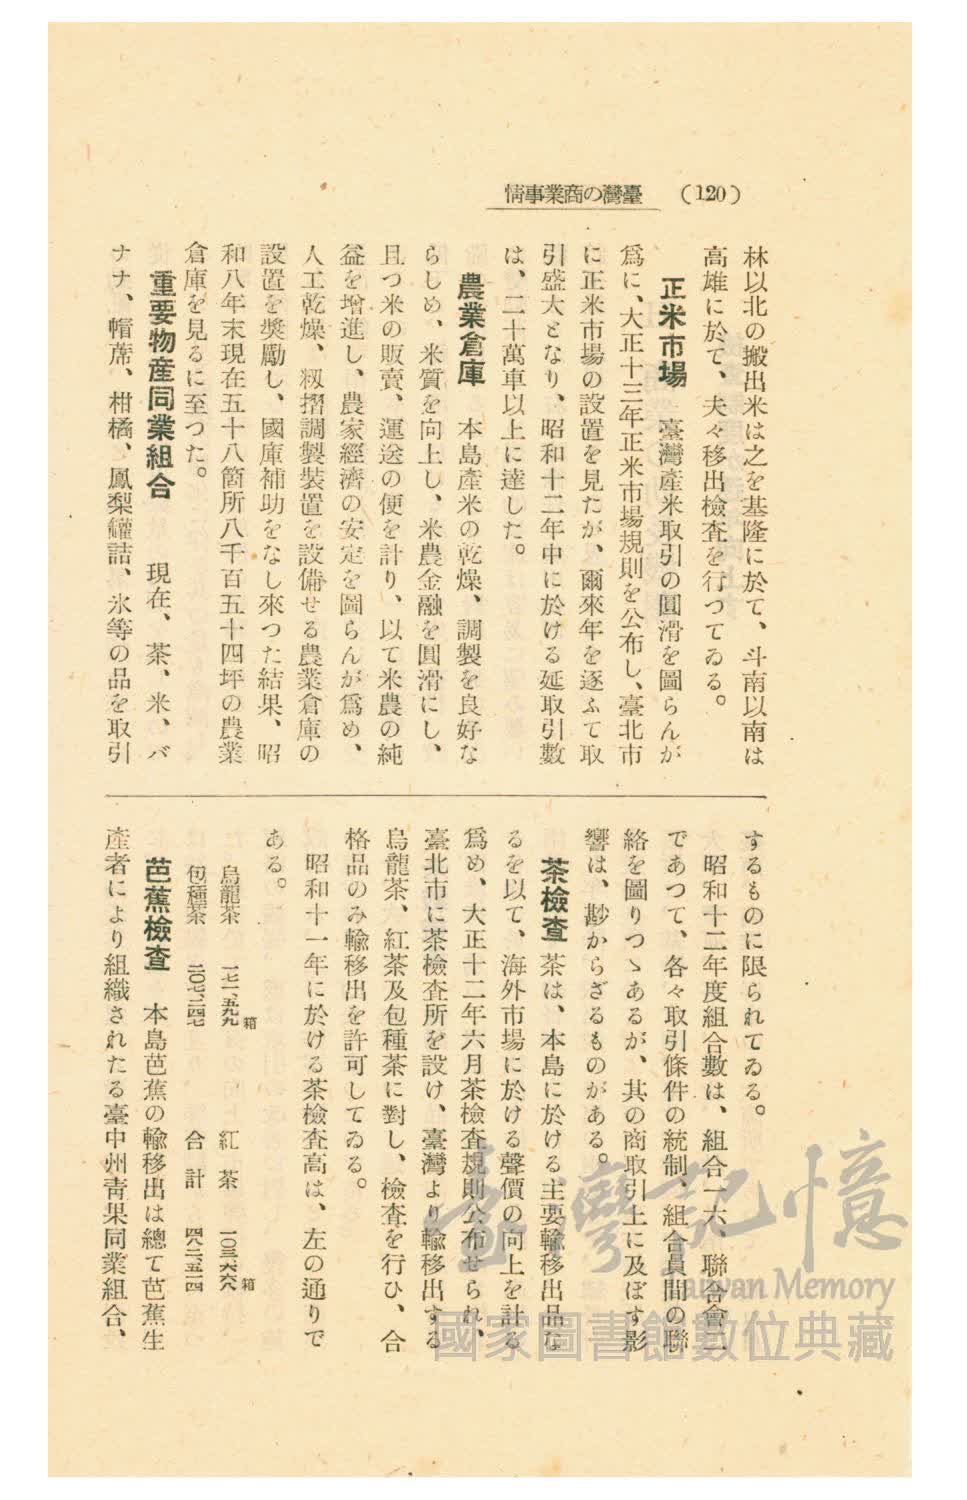 (120) 臺灣の商業事情
林以北の搬出米は之を基隆に於て、斗南以南は
高雄に於て、夫々移出檢査を行つてゐる。
正米市場 臺灣產米取引の圓滑を圖らんが
爲に、大正十三年正米市場規則を公布し、臺北市
に正米市場の設置を見たが、爾來年を逐ふて取
引盛大となり、昭和十二年中に於ける延取引數
は、二十萬車以上に達した。
農業倉庫 本島產米の乾燥、調製を良好な
らしめ、米質を向上し、米農金融を圓滑にし、
且つ米の販賣、運送の便を計り、以て米農の純
益を增進し、農家經濟の安定を圖らんが爲め、
人工乾燥、籾摺調製裝置を設備せる農業倉庫の
設置を獎勵し、國庫補助をなし來つた結果、昭
和八年末現在五十八箇所八千百五十四坪の農業
倉庫を見るに至つた。
重要物產同業組合 現在、茶、米、バ
ナナ、帽蓆、柑橘、鳳梨罐詰、氷等の品を取引
するものに限られてゐる。
昭和十二年度組合數は、組合一六、聯合會二
であつて、各々取引條件の統制、組合員間の聯
絡を圖りつゝあるが、其の商取引上に及ぼす影
響は、尠からざるものがある。
茶檢查 茶は、本島に於ける主要輸移出品な
るを以て、海外市場に於ける聲價の向上を計る
爲め、大正十二年六月茶檢查規則公布せられ、
臺北市に茶檢查所を設け、臺灣より輸移出する
烏龍茶、紅茶及包種茶に對し、檢查を行ひ、合
格品のみ輸移出を許可してゐる。
昭和十一年に於ける茶檢查高は、左の通りで
ある。
烏龍茶 一七一、五九九箱 紅茶 一〇三、六六八箱
包種茶 二〇七、二四七 合計 四八二、五一四
芭蕉檢查 本島芭蕉の輸移出は總て芭蕉生
產者により組織されたる臺中州青果同業組合、
臺灣記憶
Taiwan Memory
國家圖書館數位典藏